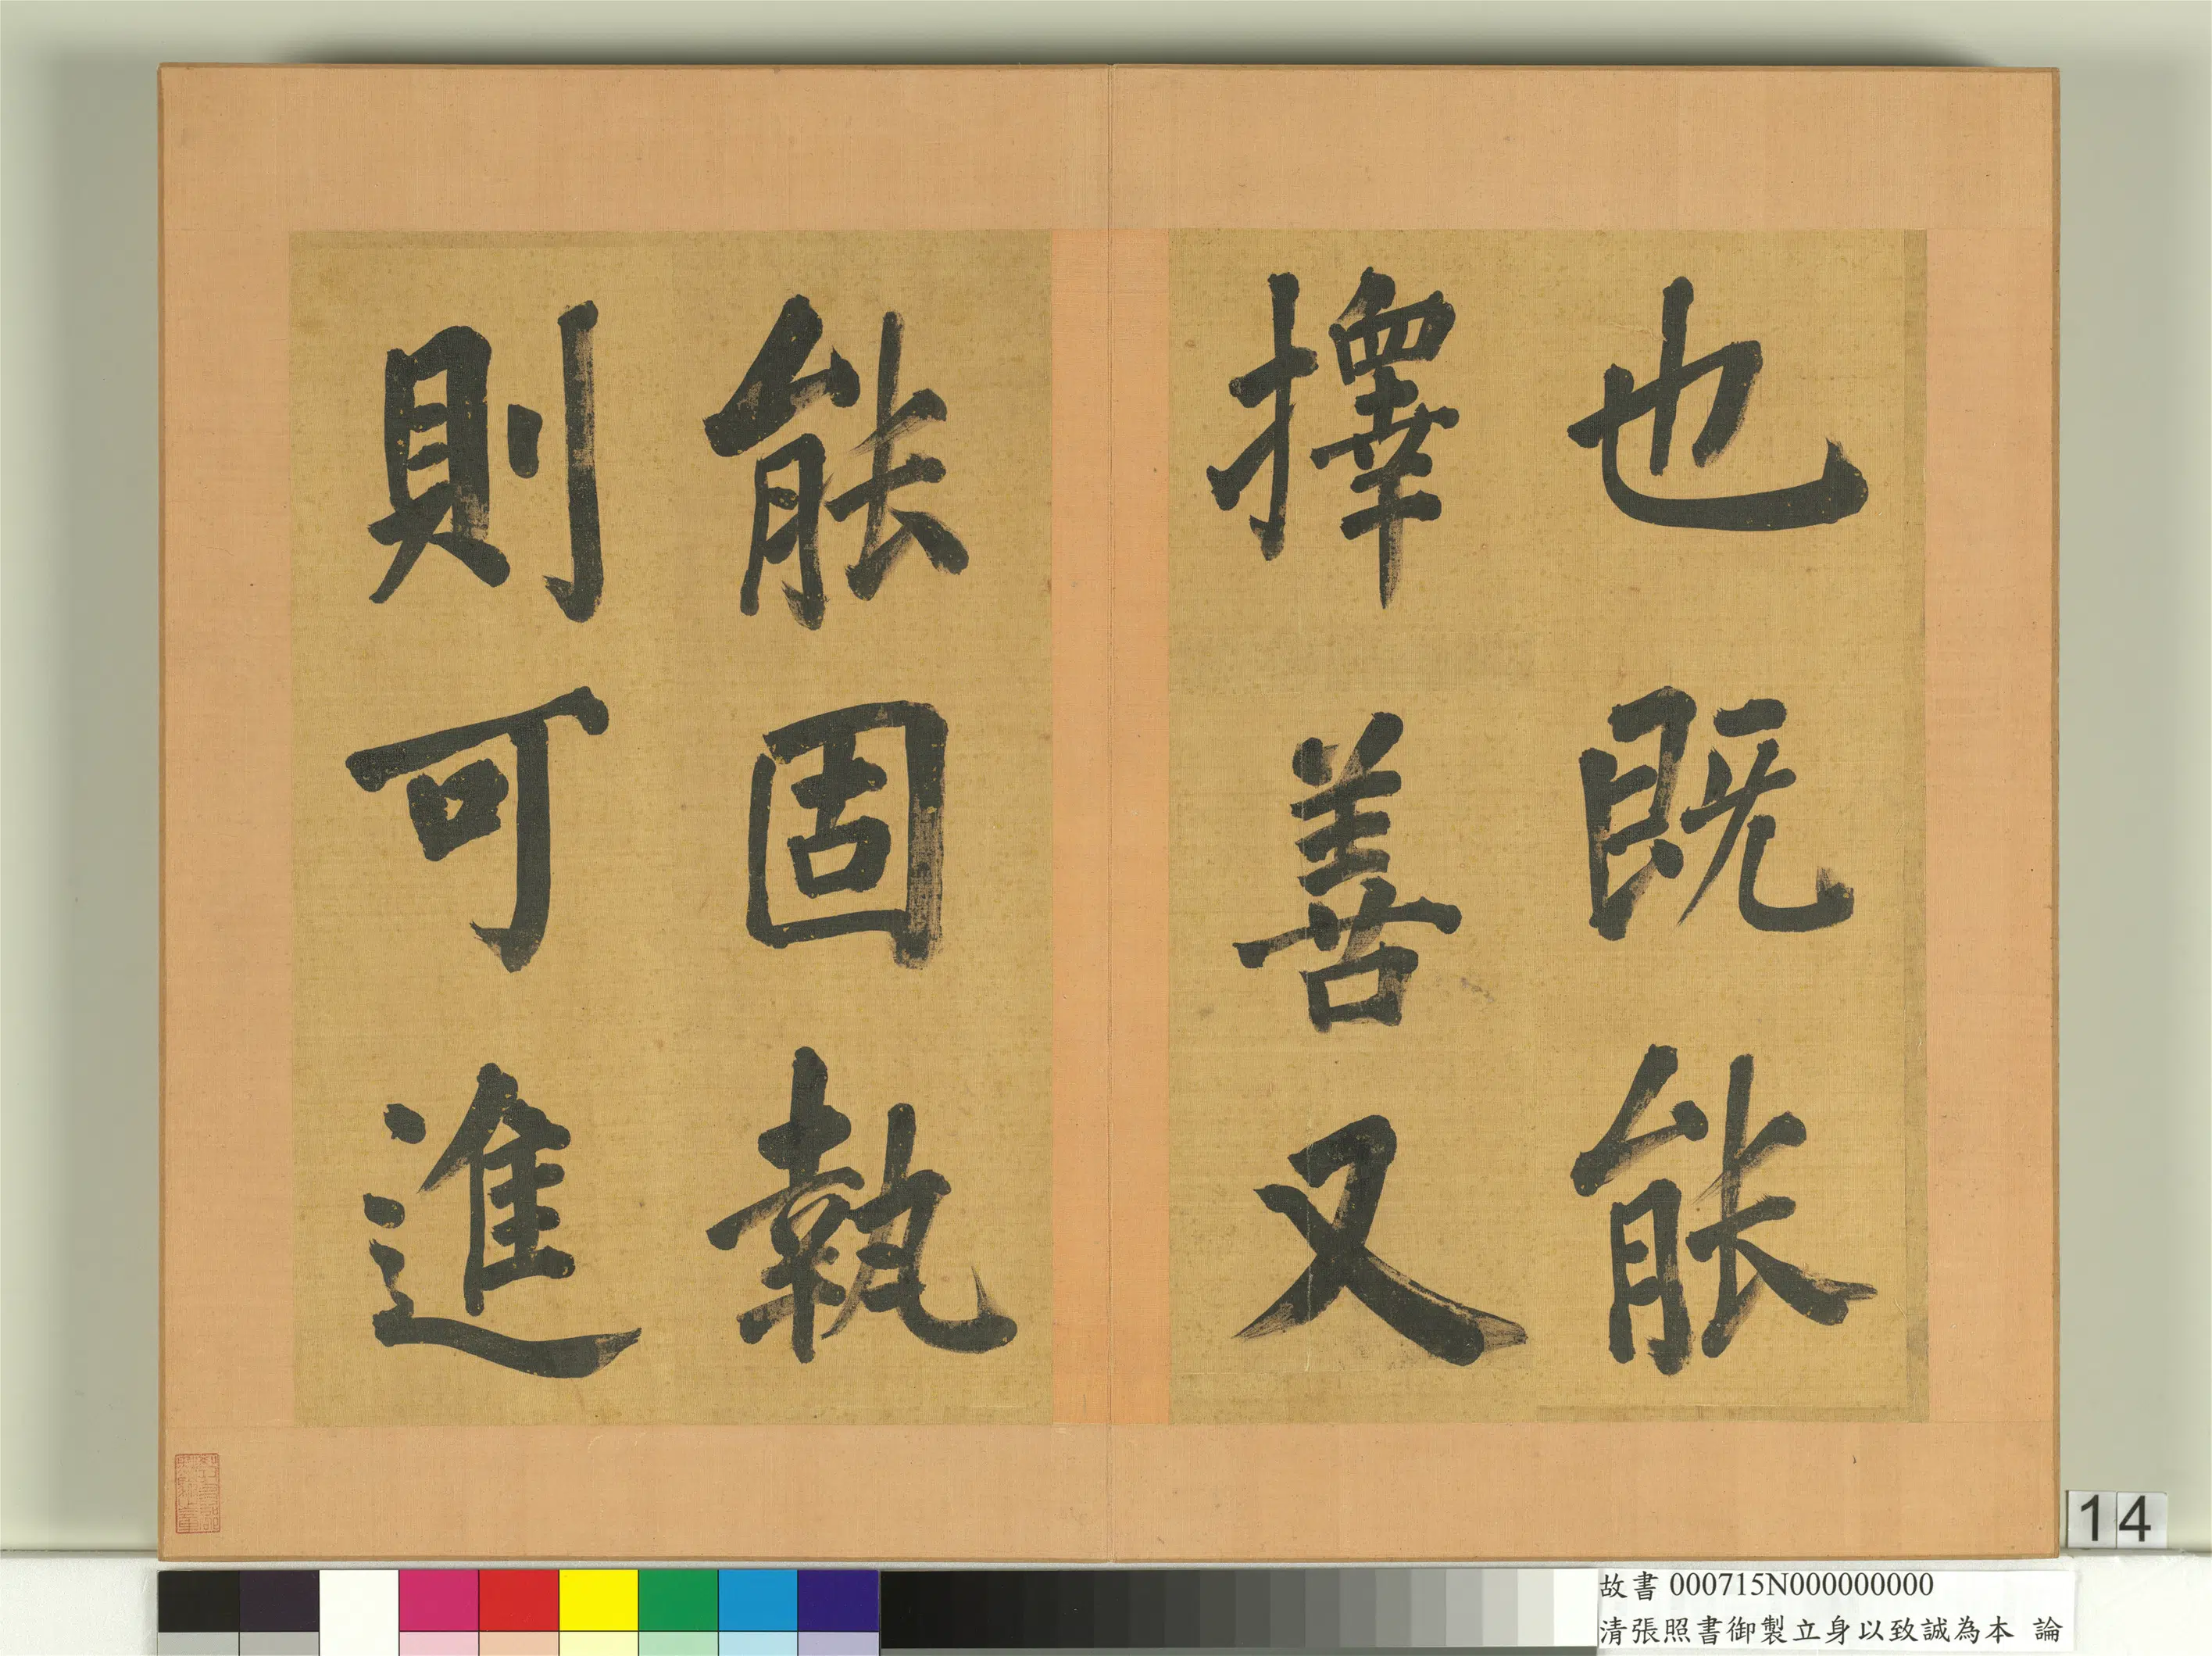 也既能
擇善又
能固執
則可進
14
故書 000715N000000000
清張照書御製立身以致誠為本 論